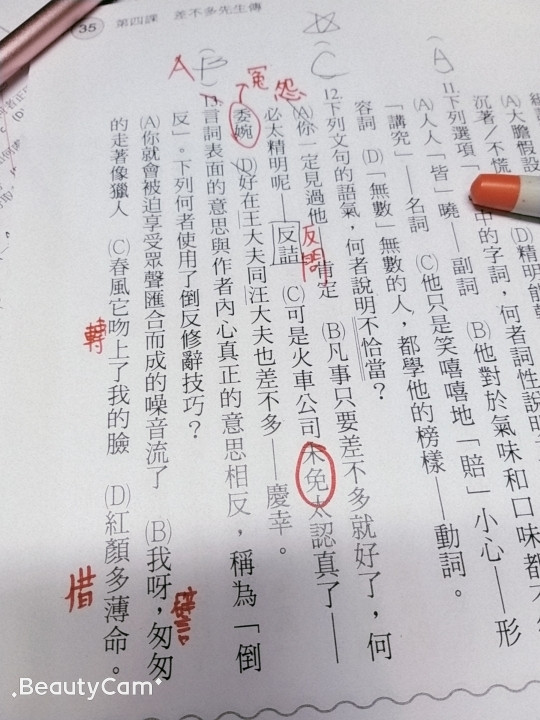 35 第四課 差不多先生傳
(A)大膽假設
(D)精明能
沉著/不慌
A
11.下列選項「
中的字詞,何者詞性說明
(A)人人「皆」曉——副詞 (B)他對於氣味和口味都不
「講究」——名詞 (C)他只是笑嘻嘻地「賠」小心——形
容詞 (D)「無數」無數的人,都學他的榜樣——動詞。
C
12.下列文句的語氣,何者說明不恰當?
(A)你一定見過他——肯定 (B)凡事只要差不多就好了,何
必太精明呢——反詰 (C)可是火車公司未免太認真了——
反問
怨
冤
委婉 (D)好在王大夫同汪大夫也差不多——慶幸。
A
B
13.言詞表面的意思與作者內心真正的意思相反,稱為「倒
反」。下列何者使用了倒反修辭技巧?
(A)你就會被迫享受眾聲匯合而成的噪音流了 (B)我呀,匆匆
譬
的走著像獵人 (C)春風它吻上了我的臉 (D)紅顏多薄命。
轉
借
BeautyCam